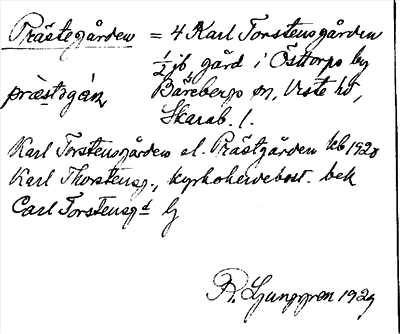 Prästegården = 4 Karl Torstensgården
1/2 jb gård i Östtorps by
præstgán, Bärebergs sn, Viste hd,
Skarab. l.
Karl Torstensgården el. Prästgården kb 1920
Karl Thorstensg., kyrkoherdebost. bek
Carl Torstensgd lj
R. Ljunggren 1929